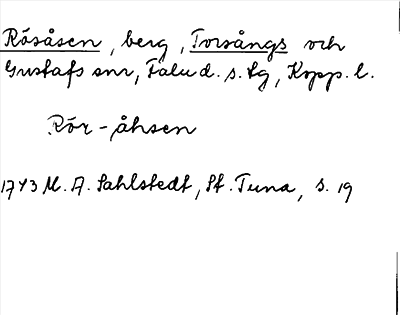 Rösåsen, berg, Torsångs och
Gustafs snr, Falu d. s. tg, Kopp. l.
Rör-åhsen
1743 M. A. Sahlstedt, St. Tuna, s. 19